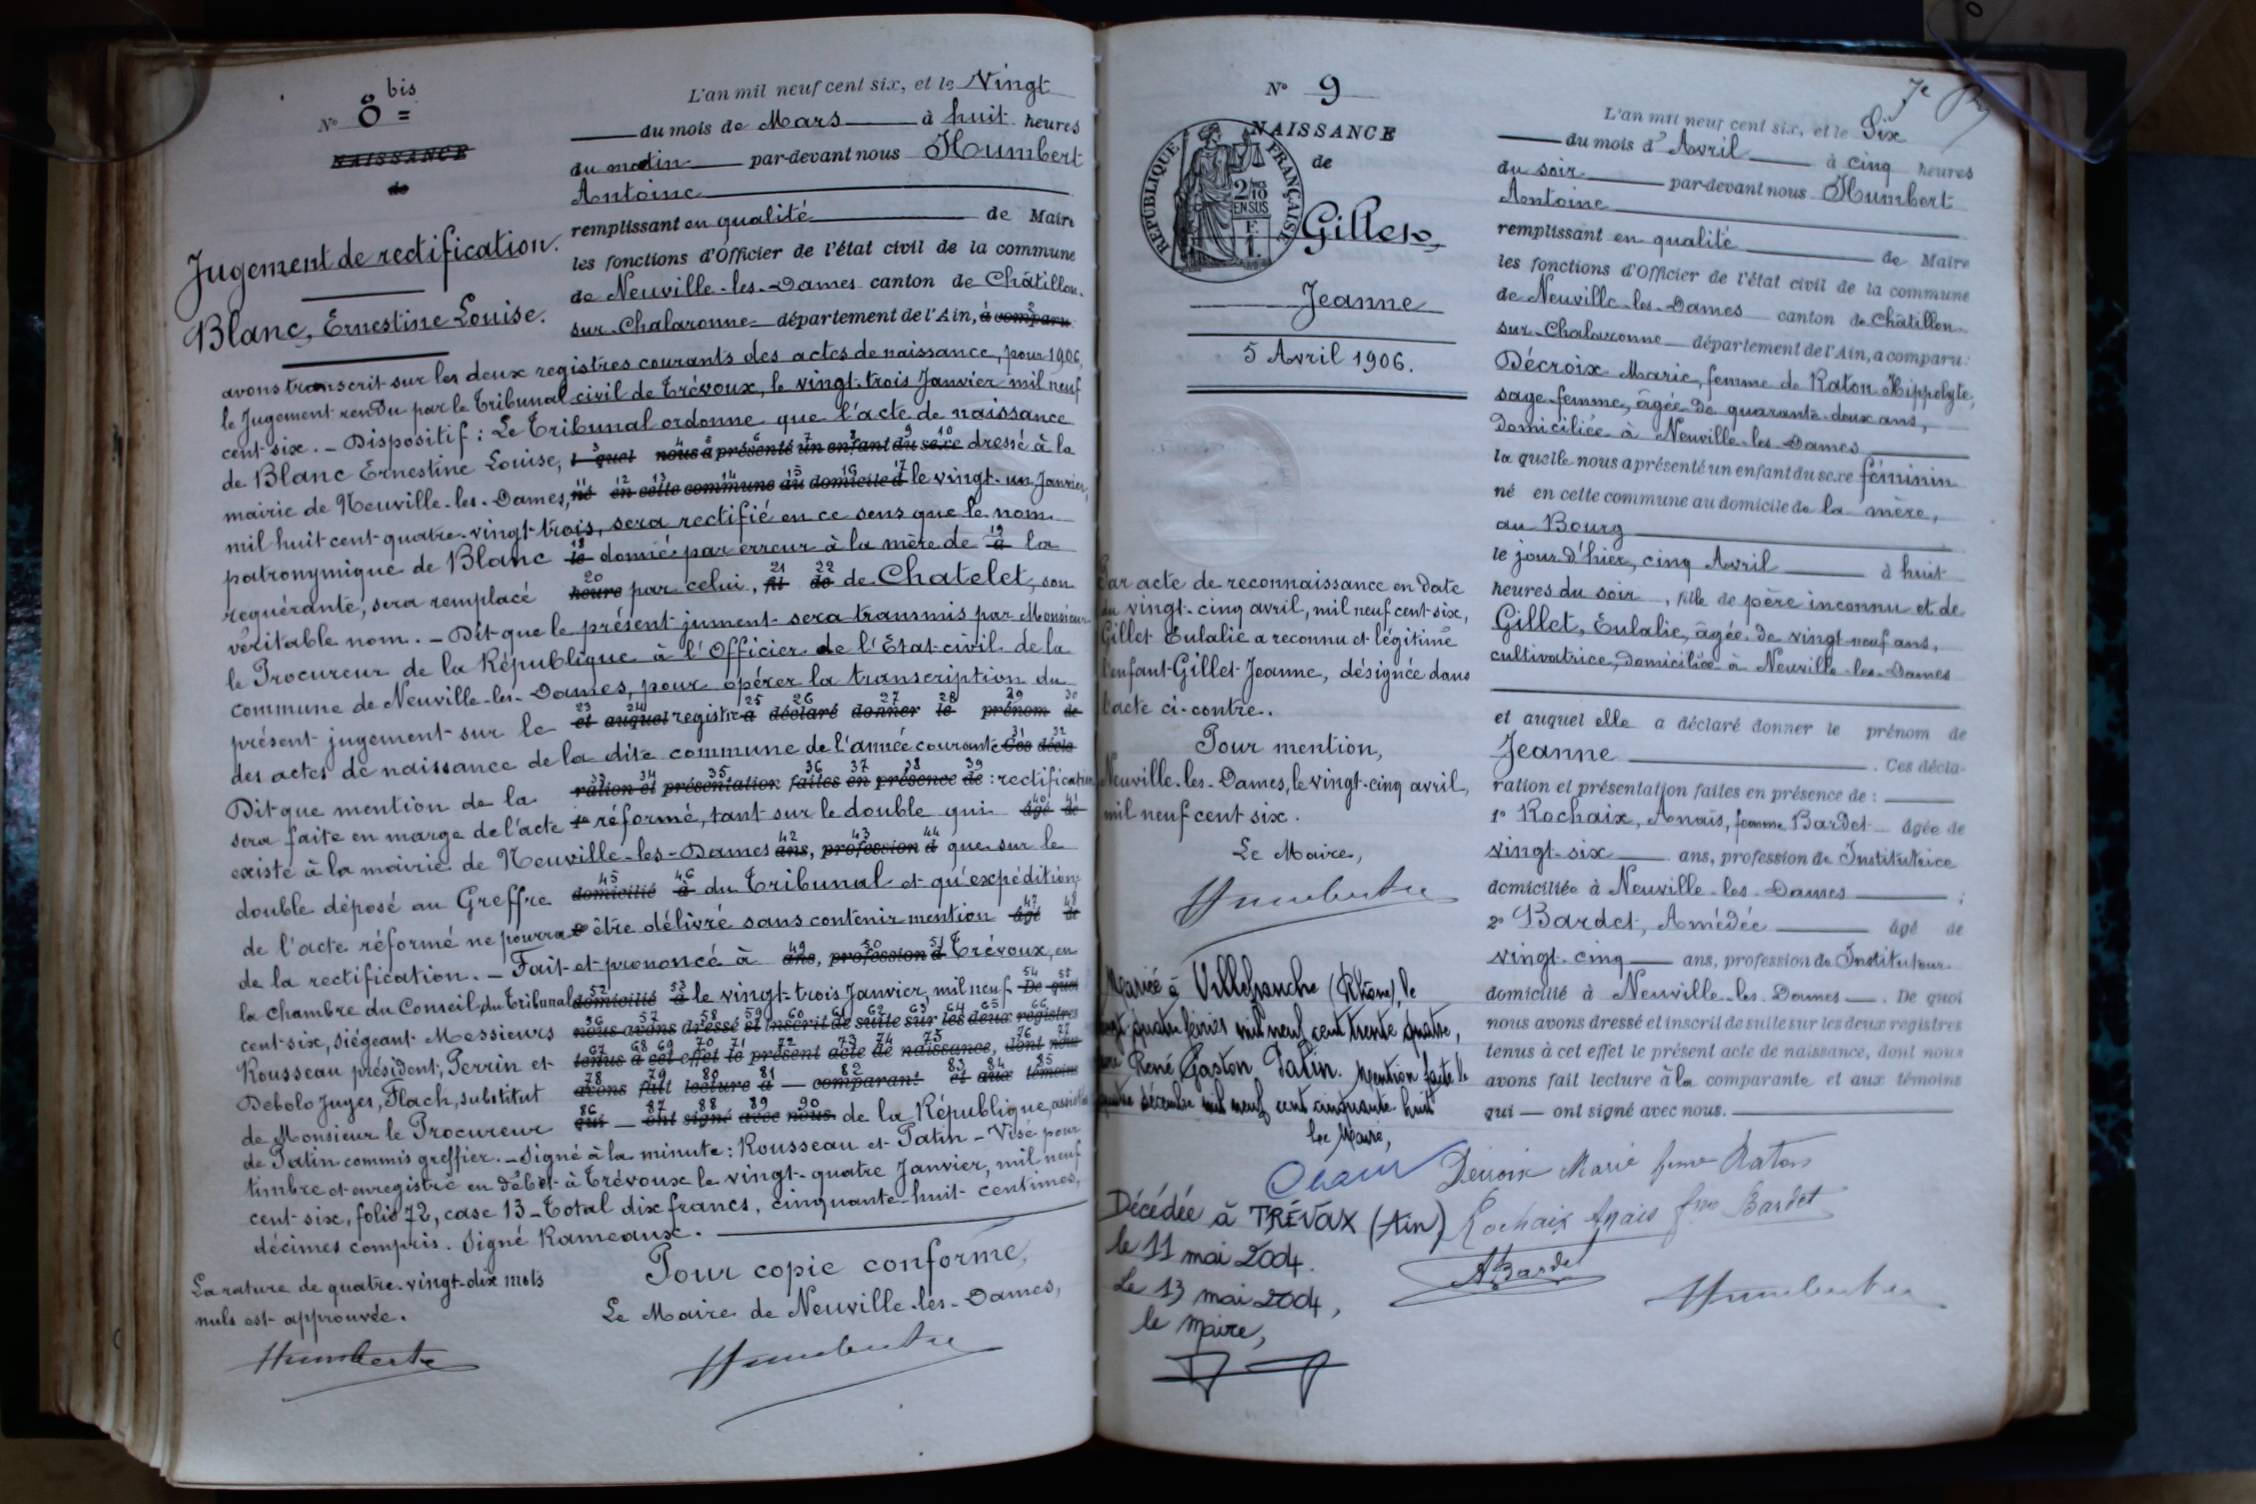 N° 8 bis =
NAISSANCE
de
Jugement de rectification.
Blanc, Ernestine Louise.
L'an mil neuf cent six, et le Vingt
du mois de Mars à huit heures
du matin par-devant nous Humbert
Antoine
remplissant en qualité de Maire
les fonctions d'Officier de l'état civil de la commune
de Neuville-les-Dames canton de Châtillon-
sur-Chalaronne département de l'Ain, a comparu
avons transcrit sur les deux registres courants des actes de naissance, pour 1906,
le Jugement rendu par le Tribunal civil de Trévoux, le vingt-trois Janvier mil neuf
cent-six. - Dispositif : Le Tribunal ordonne que l'acte de naissance
de Blanc Ernestine Louise, l quel nous a présenté un enfant du sexe dressé à la
mairie de Neuville-les-Dames, né en cette commune au domicile d le vingt-un Janvier,
mil huit cent quatre-vingt-trois, sera rectifié en ce sens que le nom
patronymique de Blanc le donné par erreur à la mère de à la
requérante, sera remplacé heure par celui, fil de de Chatelet, son
véritable nom. - Dit que le présent jument sera transmis par Monsieur
le Procureur de la République à l'Officier de l'Etat-civil de la
commune de Neuville-les-Dames, pour opérer la transcription du
présent jugement sur le et auquel registre a déclaré donner le prénom de
des actes de naissance de la dite commune de l'année courante Ces décla
Dit que mention de la ration et présentation faites en présence de : rectification
sera faite en marge de l'acte 1° réformé, tant sur le double qui âgé de
existe à la mairie de Neuville-les-Dames ans, profession d que sur le
double déposé au Greffre domicilié à du Tribunal et qu'expédition
de l'acte réformé ne pourra 2° être délivré sans contenir mention âgé de
de la rectification. - Fait et prononcé à ans, profession d Trévoux, en
la chambre du Conseil du Tribunal domicilié à le vingt-trois Janvier, mil neuf De quoi
cent-six, siégeant Messieurs nous avons dressé et inscrit de suite sur les deux registres
Rousseau président, Perrin et tenus à cet effet le présent acte de naissance, dont nous
Debolo Juges, Flach, substitut avons fait lecture à comparant et aux témoins
de Monsieur le Procureur qui ont signé avec nous. de la République, assistés
de Patin commis greffier. - Signé à la minute : Rousseau et Patin - Visé pour
timbre et enregistré en débet à Trévoux le vingt-quatre Janvier, mil neuf
cent-six, folio 72, case 13 - Total dix francs, cinquante-huit centimes,
décimes compris. Signé Rameaux.
La rature de quatre-vingt-dix mots
nuls est approuvée.
Humbert
Pour copie conforme,
Le Maire de Neuville-les-Dames,
Humbert
N° 9
NAISSANCE
de
REPUBLIQUE FRANÇAISE
2/10 EN SUS
Gillet,
Jeanne
5 Avril 1906.
Par acte de reconnaissance en date
du vingt-cinq avril, mil neuf cent-six,
Gillet Eulalie a reconnu et légitimé
l'enfant Gillet Jeanne, désignée dans
l'acte ci-contre.
Pour mention,
Neuville-les-Dames, le vingt-cinq avril,
mil neuf cent six.
Le Maire,
Humbert
Mariée à Villefranche (Rhône), le
vingt quatre février mil neuf cent trente quatre,
avec René Gaston Patin. Mention faite le
quatre décembre mil neuf cent cinquante huit
Le Maire,
Décédée à TRÉVOUX (Ain)
le 11 mai 2004.
Le 13 mai 2004,
le Maire,
7e
L'an mil neuf cent six, et le Six
du mois d'Avril à cinq heures
du soir par-devant nous Humbert
Antoine
remplissant en qualité de Maire
les fonctions d'Officier de l'état civil de la commune
de Neuville-les-Dames canton de Châtillon-
sur-Chalaronne département de l'Ain, a comparu :
Décroix Marie, femme de Raton Hippolyte,
sage-femme, âgée de quarante-deux ans,
domiciliée à Neuville-les-Dames
la quelle nous a présenté un enfant du sexe féminin
né en cette commune au domicile de la mère,
au Bourg
le jour d'hier, cinq Avril à huit
heures du soir, fille de père inconnu et de
Gillet, Eulalie, âgée de vingt-neuf ans,
cultivatrice, domiciliée à Neuville-les-Dames
et auquel elle a déclaré donner le prénom de
Jeanne. Ces décla-
ration et présentation faites en présence de :
1° Rochaix, Anaïs, femme Bardet âgée de
vingt-six ans, profession de Institutrice
domiciliée à Neuville-les-Dames ;
2° Bardet, Amédée âgé de
vingt-cinq ans, profession de Instituteur
domicilié à Neuville-les-Dames. De quoi
nous avons dressé et inscrit de suite sur les deux registres
tenus à cet effet le présent acte de naissance, dont nous
avons fait lecture à la comparante et aux témoins
qui — ont signé avec nous.
Décroix Marie femme Raton
Rochaix Anaïs fme Bardet
A Bardet
Humbert